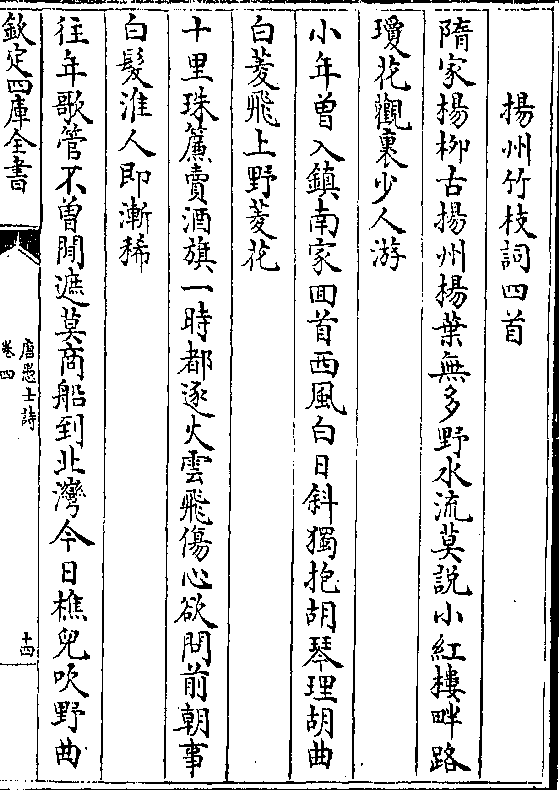 揚州竹枝詞四首
隋家揚柳古揚州揚葉無多野水流莫説小紅樓畔路
瓊花觀裏少人游
小年曽入鎮南家囬首西風白日斜獨抱胡琴理胡曲
白菱飛上野菱花
十里珠簾賣酒旗一時都逐火雲飛傷心欲問前朝事
白髪淮人即漸稀
往年歌管不曽閒遮莫商船到北灣今日樵兒吹野曲
欽定四庫全書
唐愚士詩
卷四
十四